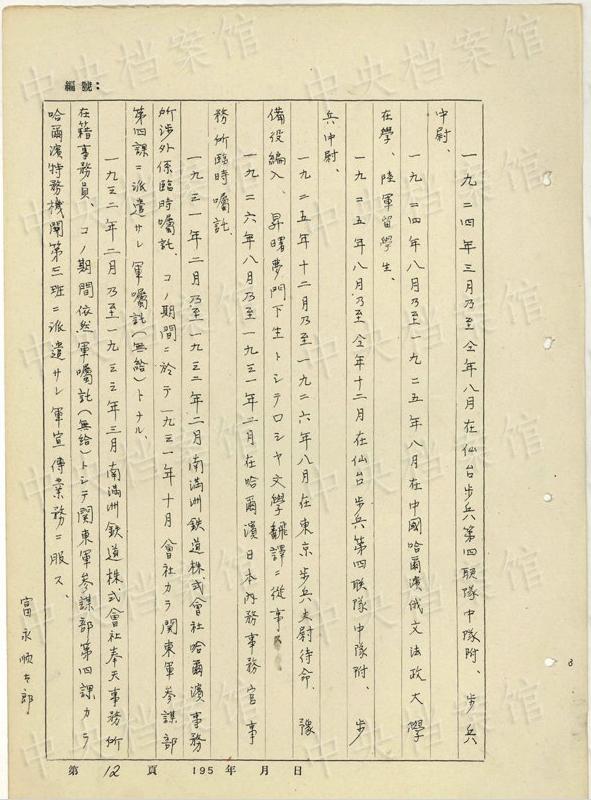 編號：
一九二四年三月乃至仝年八月在仙台步兵第四聯隊中隊附、步兵
中尉、
一九二四年八月乃至一九二五年八月在中國哈爾濱俄文法政大學
在學、陸軍留學生、
一九二五年八月乃至仝年十二月在仙台步兵第四聯隊中隊附、步
兵中尉、
一九二五年十二月乃至一九二六年八月在東京步兵大尉待命、豫
備役編入、昇曙夢門下生トシテロシヤ文學翻譯ニ從事ス
一九二六年八月乃至一九三一年二月在哈爾濱日本內務事務官事
務所臨時囑託、
一九三一年二月乃至一九三二年二月南滿洲鉄道株式會社哈爾濱事務
所涉外係臨時囑託、コノ期間ニ於テ一九三一年十月會社カラ関東軍参謀部
第四課ニ派遣サレ軍囑託(無給)トナル、
一九三二年二月乃至一九三三年三月南滿洲鉄道株式會社奉天事務所
在籍事務員、コノ期間依然軍囑託(無給)トシテ関東軍参謀部第四課カラ
哈爾濱特務機関第三班ニ派遣サレ軍宣傳業務ニ服ス、
富永順太郎
第12頁 195 年 月 日
中央档案馆